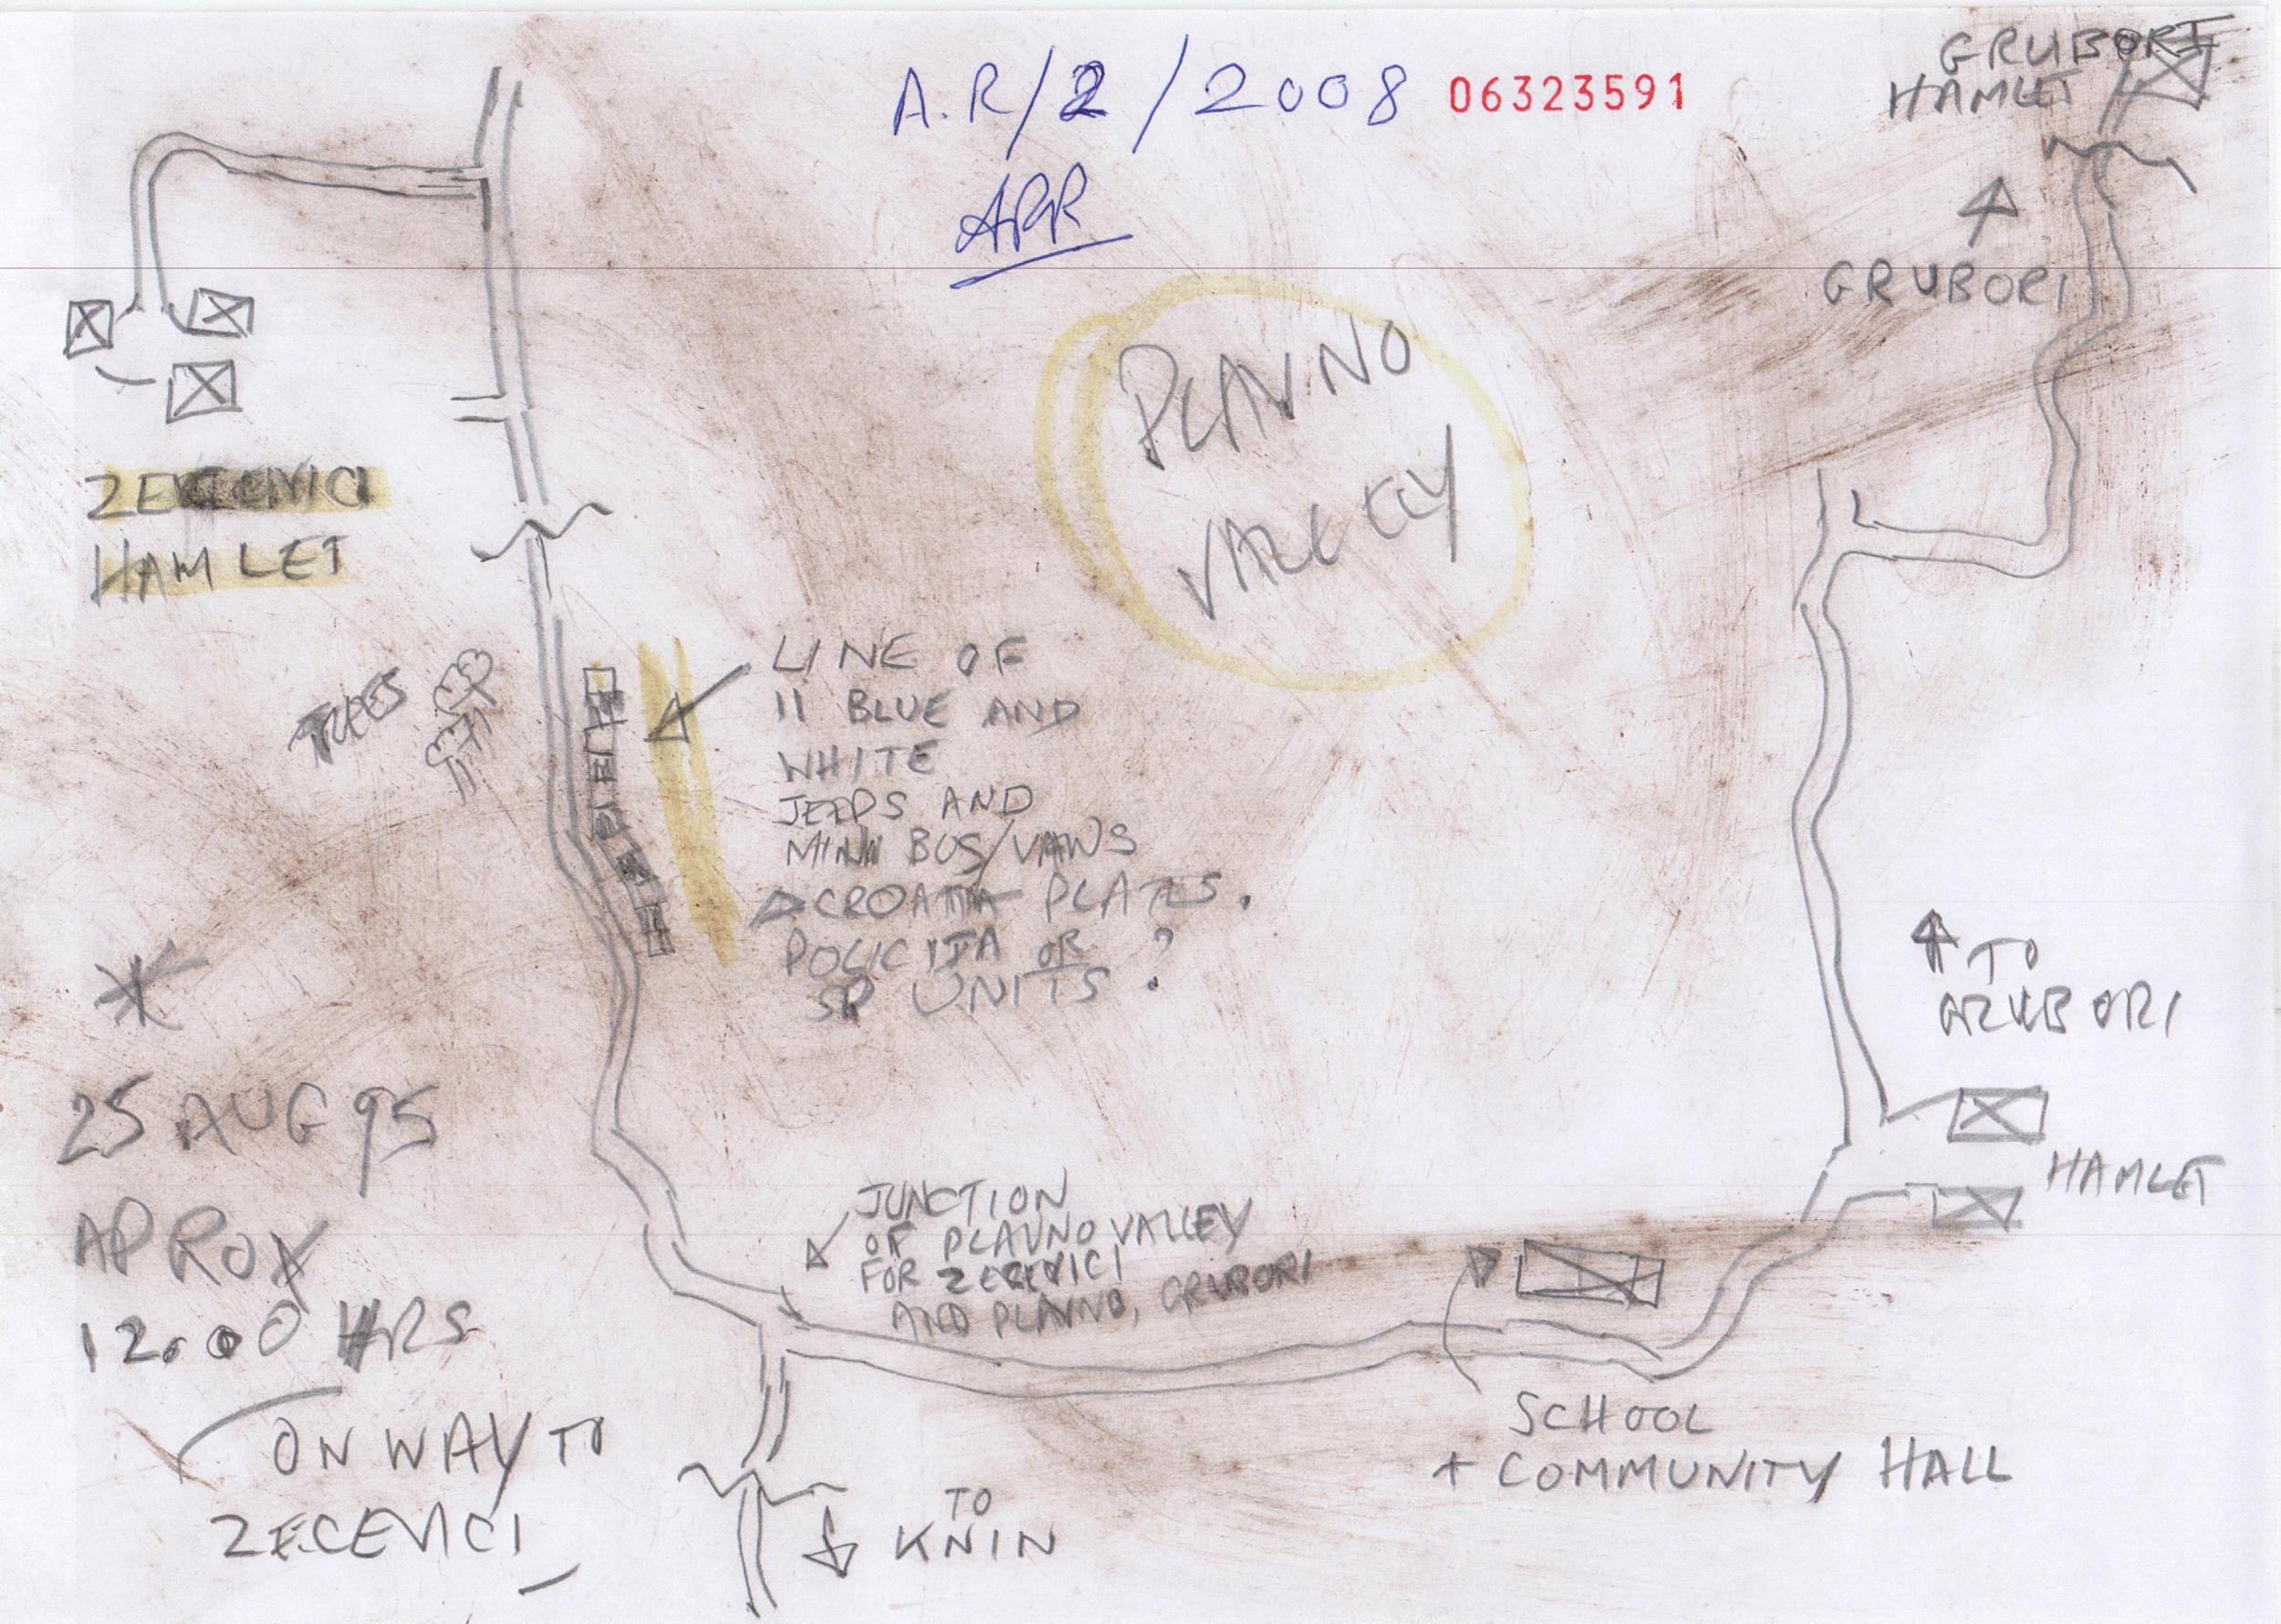 A.R/2/2008 06323591
ARR
GRUBORI
HAMLET
GRUBORI
PLAVNO
VALLEY
ZECEVICI
HAMLET
TREES
LINE OF
11 BLUE AND
WHITE
JEEPS AND
MINI BUS/VANS
CROATIA PLATES.
POLICIJA OR
SP UNITS ?
25 AUG 95
APROX
12.00 HRS
ON WAY TO
ZECEVICI
TO
GRUBORI
HAMLET
JUNCTION
OF PLAVNO VALLEY
FOR ZECEVICI
AND PLAVNO, GRUBORI
SCHOOL
+ COMMUNITY HALL
TO
KNIN